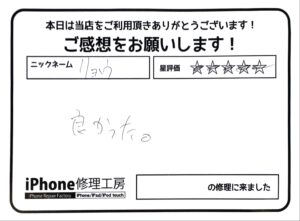 本日は当店をご利用頂きありがとうございます！
ご感想をお願いします！
ニックネーム リョウ
星評価 ☆☆☆☆☆
良かった。
iPhone修理工房
iPhone Repair Factory iPhone/iPad/iPod touch
の修理に来ました